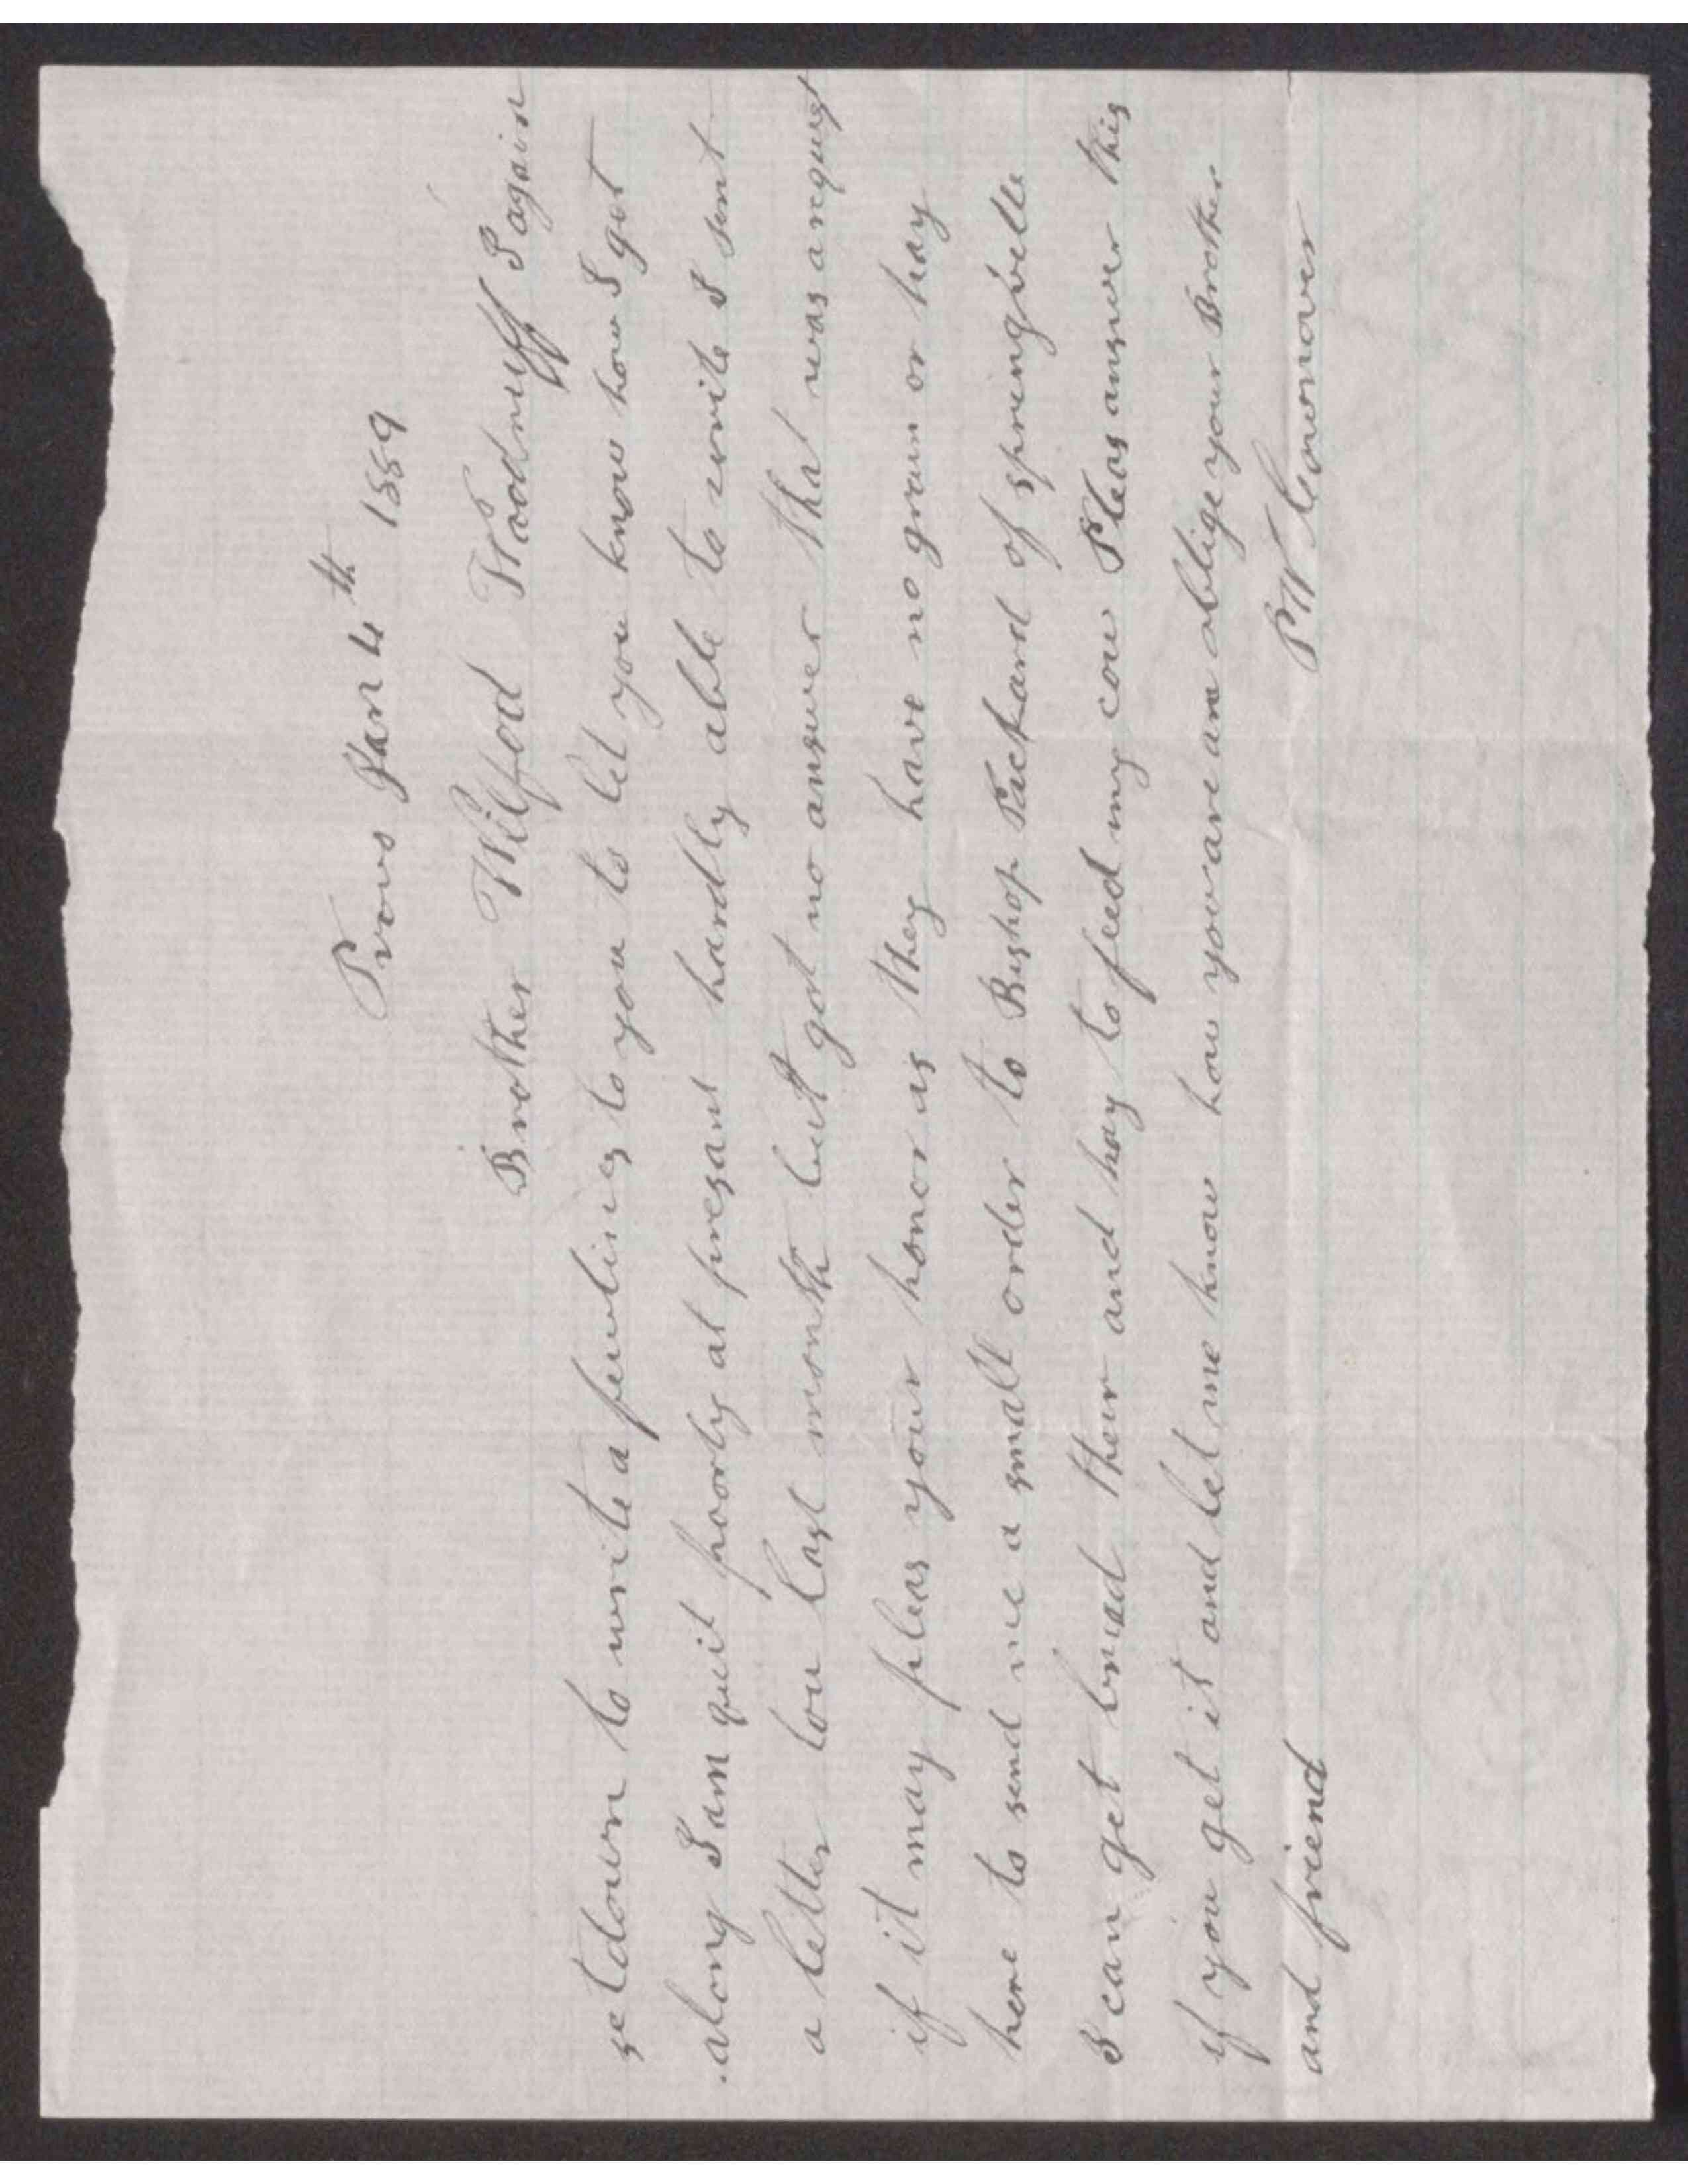 Provo Jan 4th 1889
Brother Wilford Woodruff I again
set down to write a fewlines to you to let you know how I get
along I am quit poorly at presant hardly able to write I sent
a letter tou last month but got no answer that was a request
if it may pleas your honor as they have no grain or hay
here to send me a small order to Bishop Packard of springville
I can get bread their and hay to feed my cow Pleas answer this
if you get it and let me know how you are oblige your Brother
and friend P W Conover